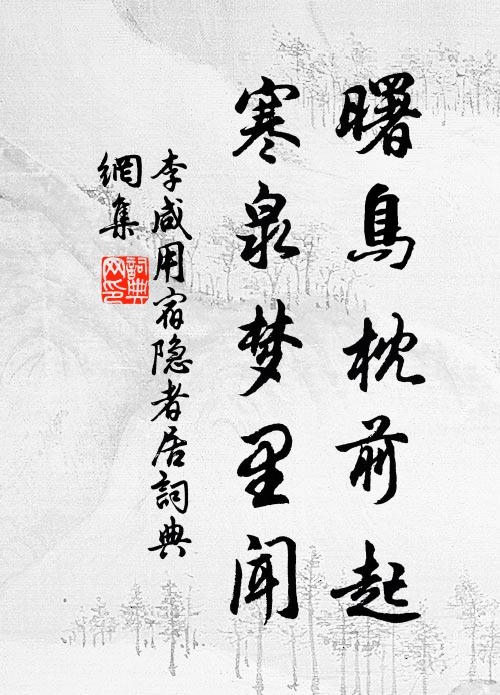 曙鳥枕前起
寒泉梦里闻
李咸用宿隐者居詞典
網集
詞典
网印